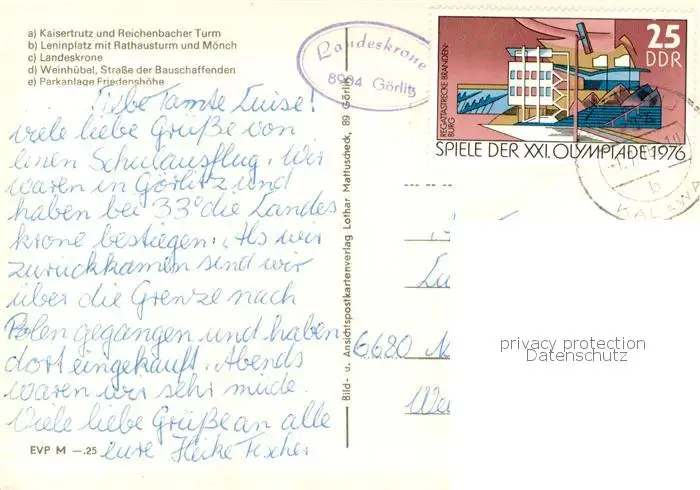 a) Kaisertrutz und Reichenbacher Turm
b) Leninplatz mit Rathausturm und Mönch
c) Landeskrone
d) Weinhübel, Straße der Bauschaffenden
e) Parkanlage Friedenshöhe
Liebe Tante Luise!
viele liebe Grüße von
einen Schulausflug. Wir
waren in Görlitz und
haben bei 33° die Landes
krone bestiegen. Als wir
zurückkamen sind wir
über die Grenze nach
Polen gegangen und haben
dort eingekauft. Abends
waren wir sehr müde.
Viele liebe Grüße an alle
eure Heike Fischer
EVP M —.25
Bild- u. Ansichtspostkartenverlag Lothar Mattuscheck, 89 Görlitz
Landeskrone
8904 Görlitz
25
DDR
REGATTASTRECKE BRANDEN-
BURG
SPIELE DER XXI. OLYMPIADE 1976
b
6620
privacy protection
Datenschutz